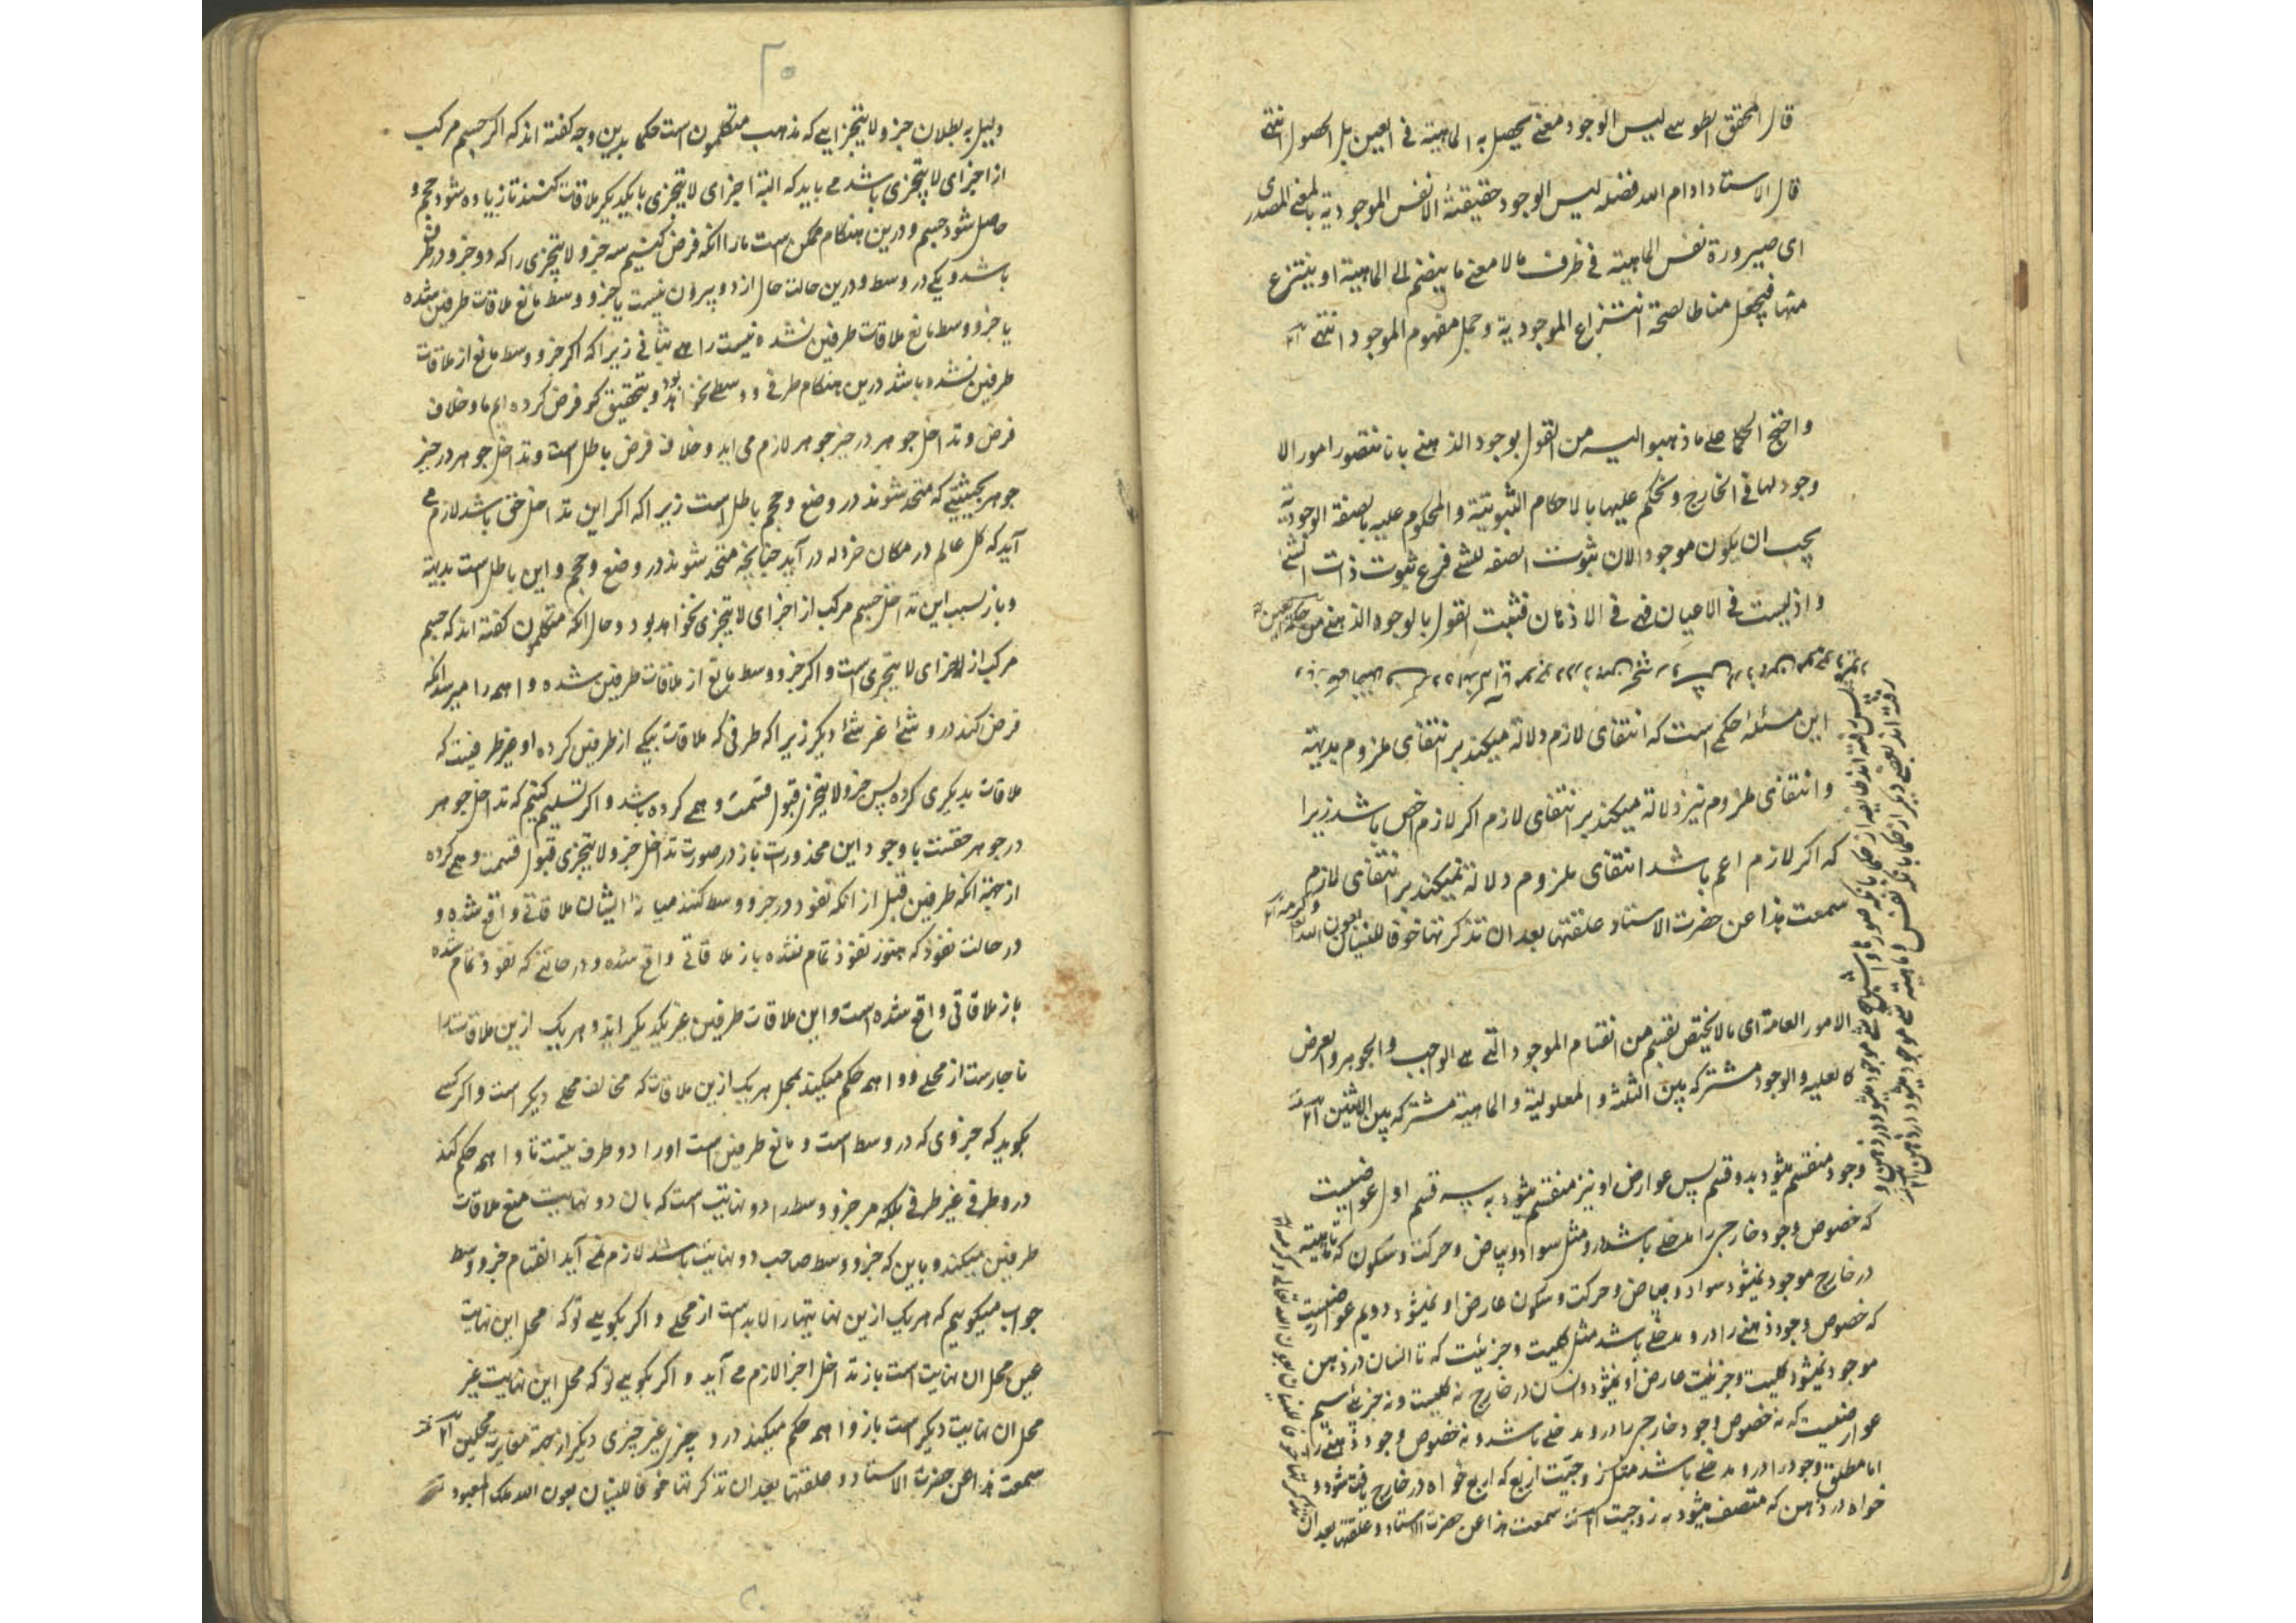 قال المحقق الطوسے ليس الوجود معنے يحصل به الماهية فى العين بل الحصول انتهى
قال الاستاد ادام الله فضله ليس الوجود حقيقته الا نفس الموجودية بالمعنے المصدرى
اى صيرورة نفس الماهية فے ظرف ما لا معنے ما ينضم الى الماهية او ينتزع
منها فيجعل مناطا لصحة انتزاع الموجودية وحمل مفهوم الموجود انتهى ١٢
واحتج الحكما على ما ذهبوا اليه من القول بوجود الذهنے بانا نتصور امورا لا
وجود لها فى الخارج ونحكم عليها بالاحكام الثبوتية والمحكوم عليه بالصفة الوجودية
يجب ان يكون موجودا لان ثبوت الصفة للشے فرع ثبوت ذات الشے
واذ ليست فى الاعيان فهے فى الاذهان فثبت القول بالوجود الذهنے من حكمة العين
اين مسئله حكمے است كه انتفاى لازم دلالة ميكند بر انتفاى ملزوم بديهة
وانتفاى ملزوم نيز دلالة ميكند بر انتفاى لازم اكر لازم اخص باشد زيرا
كه اكر لازم اعم باشد انتفاى ملزوم دلالة نميكند بر انتفاى لازم
سمعت هذا عن حضرت الاستاد علقتها بعد ان تذكرتها خوفا للنسيان بعون الله وكرمه ١٢
الامور العامة اى ما لا يختص بقسم من اقسام الموجود التے هے الواجب والجوهر والعرض
كالعلية والوجود مشتركه بين الثلثة والمعلولية والماهية مشتركه بين الاثنين ١٢
وجود منقسم ميشود بدو قسم پس عوارض او نيز منقسم ميشود به سه قسم اول عوارضيست
كه خصوص وجود خارجے را مدخلے باشد در و مثل سواد و بياض و حركت و سكون كه تا ماهية
در خارج موجود نميشود سواد و بياض و حركت و سكون عارض او نميشود دويم عوارضيست
كه خصوص وجود ذهنے را در و مدخلے باشد مثل كليت و جزئيت كه تا انسان در ذهن
موجود نميشود كليت و جزئيت عارض او نميشود و انسان در خارج نه كليست و نه جزئے سيم
عوارضيست كه نه خصوص وجود خارجے را در و مدخلے باشد و نه خصوص وجود ذهنے را
اما مطلق وجود را در و مدخلے باشد مثل زوجيت اربع كه اربع خواه در خارج يافت شود و
خواه در ذهن كه متصف ميشود به زوجيت ١٢ سمعت هذا عن حضرت الاستاد و علقتها بعد ان
تذكرتها خوفا للنسيان بعون الله تعالى وكرمه ١٢
٢٠
دليل به بطلان جزو لا يتجزايے كه مذهب متكلمون است حكما بدين وجه كفته اند كه اكر جسم مركب
از اجزاى لا يتجزى باشد مے بايد كه البته اجزاى لا يتجزى با يكديكر ملاقات كنند تا زياده شود حجم و
حاصل شود جسم و درين هنكام ممكن است ما را انكه فرض كنيم سه جزو لا يتجزى را كه دو جزو در طرفين
باشد و يكے در وسط و درين حالت حال از دو بيرون نيست يا جزو وسط مانع ملاقات طرفين شده
يا جزو وسط مانع ملاقات طرفين نشده نيست راهے بثانى زيرا كه اكر جزو وسط مانع از ملاقات
طرفين نشده باشد درين هنكام طرفے و وسطے نخواهد بود و بتحقيق كو فرض كرده ايم ما و خلاف
فرض و تداخل جوهر در حيز جوهر لازم مى ايد و خلاف فرض باطل است و تداخل جوهر در حيز
جوهر بحيثيتے كه متحد شوند در وضع و حجم باطل است زيرا كه اكر اين تداخل حق باشد لازم مے
آيد كه كل عالم در مكان خردله در آيد چنانچه متحد شوند در وضع و حجم و اين باطل است بديهة
و باز بسبب اين تداخل جسم مركب از اجزاى لا يتجزى نخواهد بود و حال انكه متكلمون كفته اند كه جسم
مركب از اجزاى لا يتجزى است و اكر جزو وسط مانع از ملاقات طرفين شده واهمه را ميرسد انكه
فرض كند در و شئ غير شئ ديكر زيرا كه طرفى كه ملاقات بيكے از طرفين كرده او غير طرفيست كه
ملاقات بديكرى كرده پس جزو لا يتجزى قبول قسمت وهمے كرده باشد و اكر تسليم كنيم كه تداخل جوهر
در جوهر حقست با وجود اين محذورات باز در صورت تداخل جزو لا يتجزى قبول قسمت وهمے كرده
از جهة انكه طرفين قبل از انكه نفوذ در جزو وسط كنند ميانه ايشان ملاقاتے واقع شده و
در حالت نفوذ كه هنوز نفوذ تمام نشده باز ملاقاتے واقع شده و در حالتے كه نفوذ تمام شده
باز ملاقاتى واقع شده است و اين ملاقات طرفين غير يكديكر اند و هر يك ازين ملاقات را
ناچارست از محلے و واهمه حكم ميكند بمحل هر يك ازين ملاقات كه مخالف محلے ديكر است و اكر كسے
بكويد كه جزوى كه در وسط است و مانع طرفين است او را دو طرف نيست تا واهمه حكم كند
در و طرفے غير طرفے بلكه مر جزو وسط را دو نهايت است كه بان دو نهايت منع ملاقات
طرفين ميكند و باين كه جزو وسط صاحب دو نهايت باشد لازم نمے آيد انقسام جزو وسط
جواب ميكوييم كه هر يك ازين نهايتها را لابد است از محلے و اكر بكويے تو كه محل اين نهايت
عين محل ان نهايت است باز تداخل اجزا لازم مے آيد و اكر بكويے تو كه محل اين نهايت غير
محل ان نهايت ديكر است باز واهمه حكم ميكند در و چيز غير چيزى ديكر از جهة مغايرت محلين ١٢
سمعت هذا عن حضرت الاستاد و علقتها بعد ان تذكرتها خوفا للنسيان بعون الله ملك المعبود